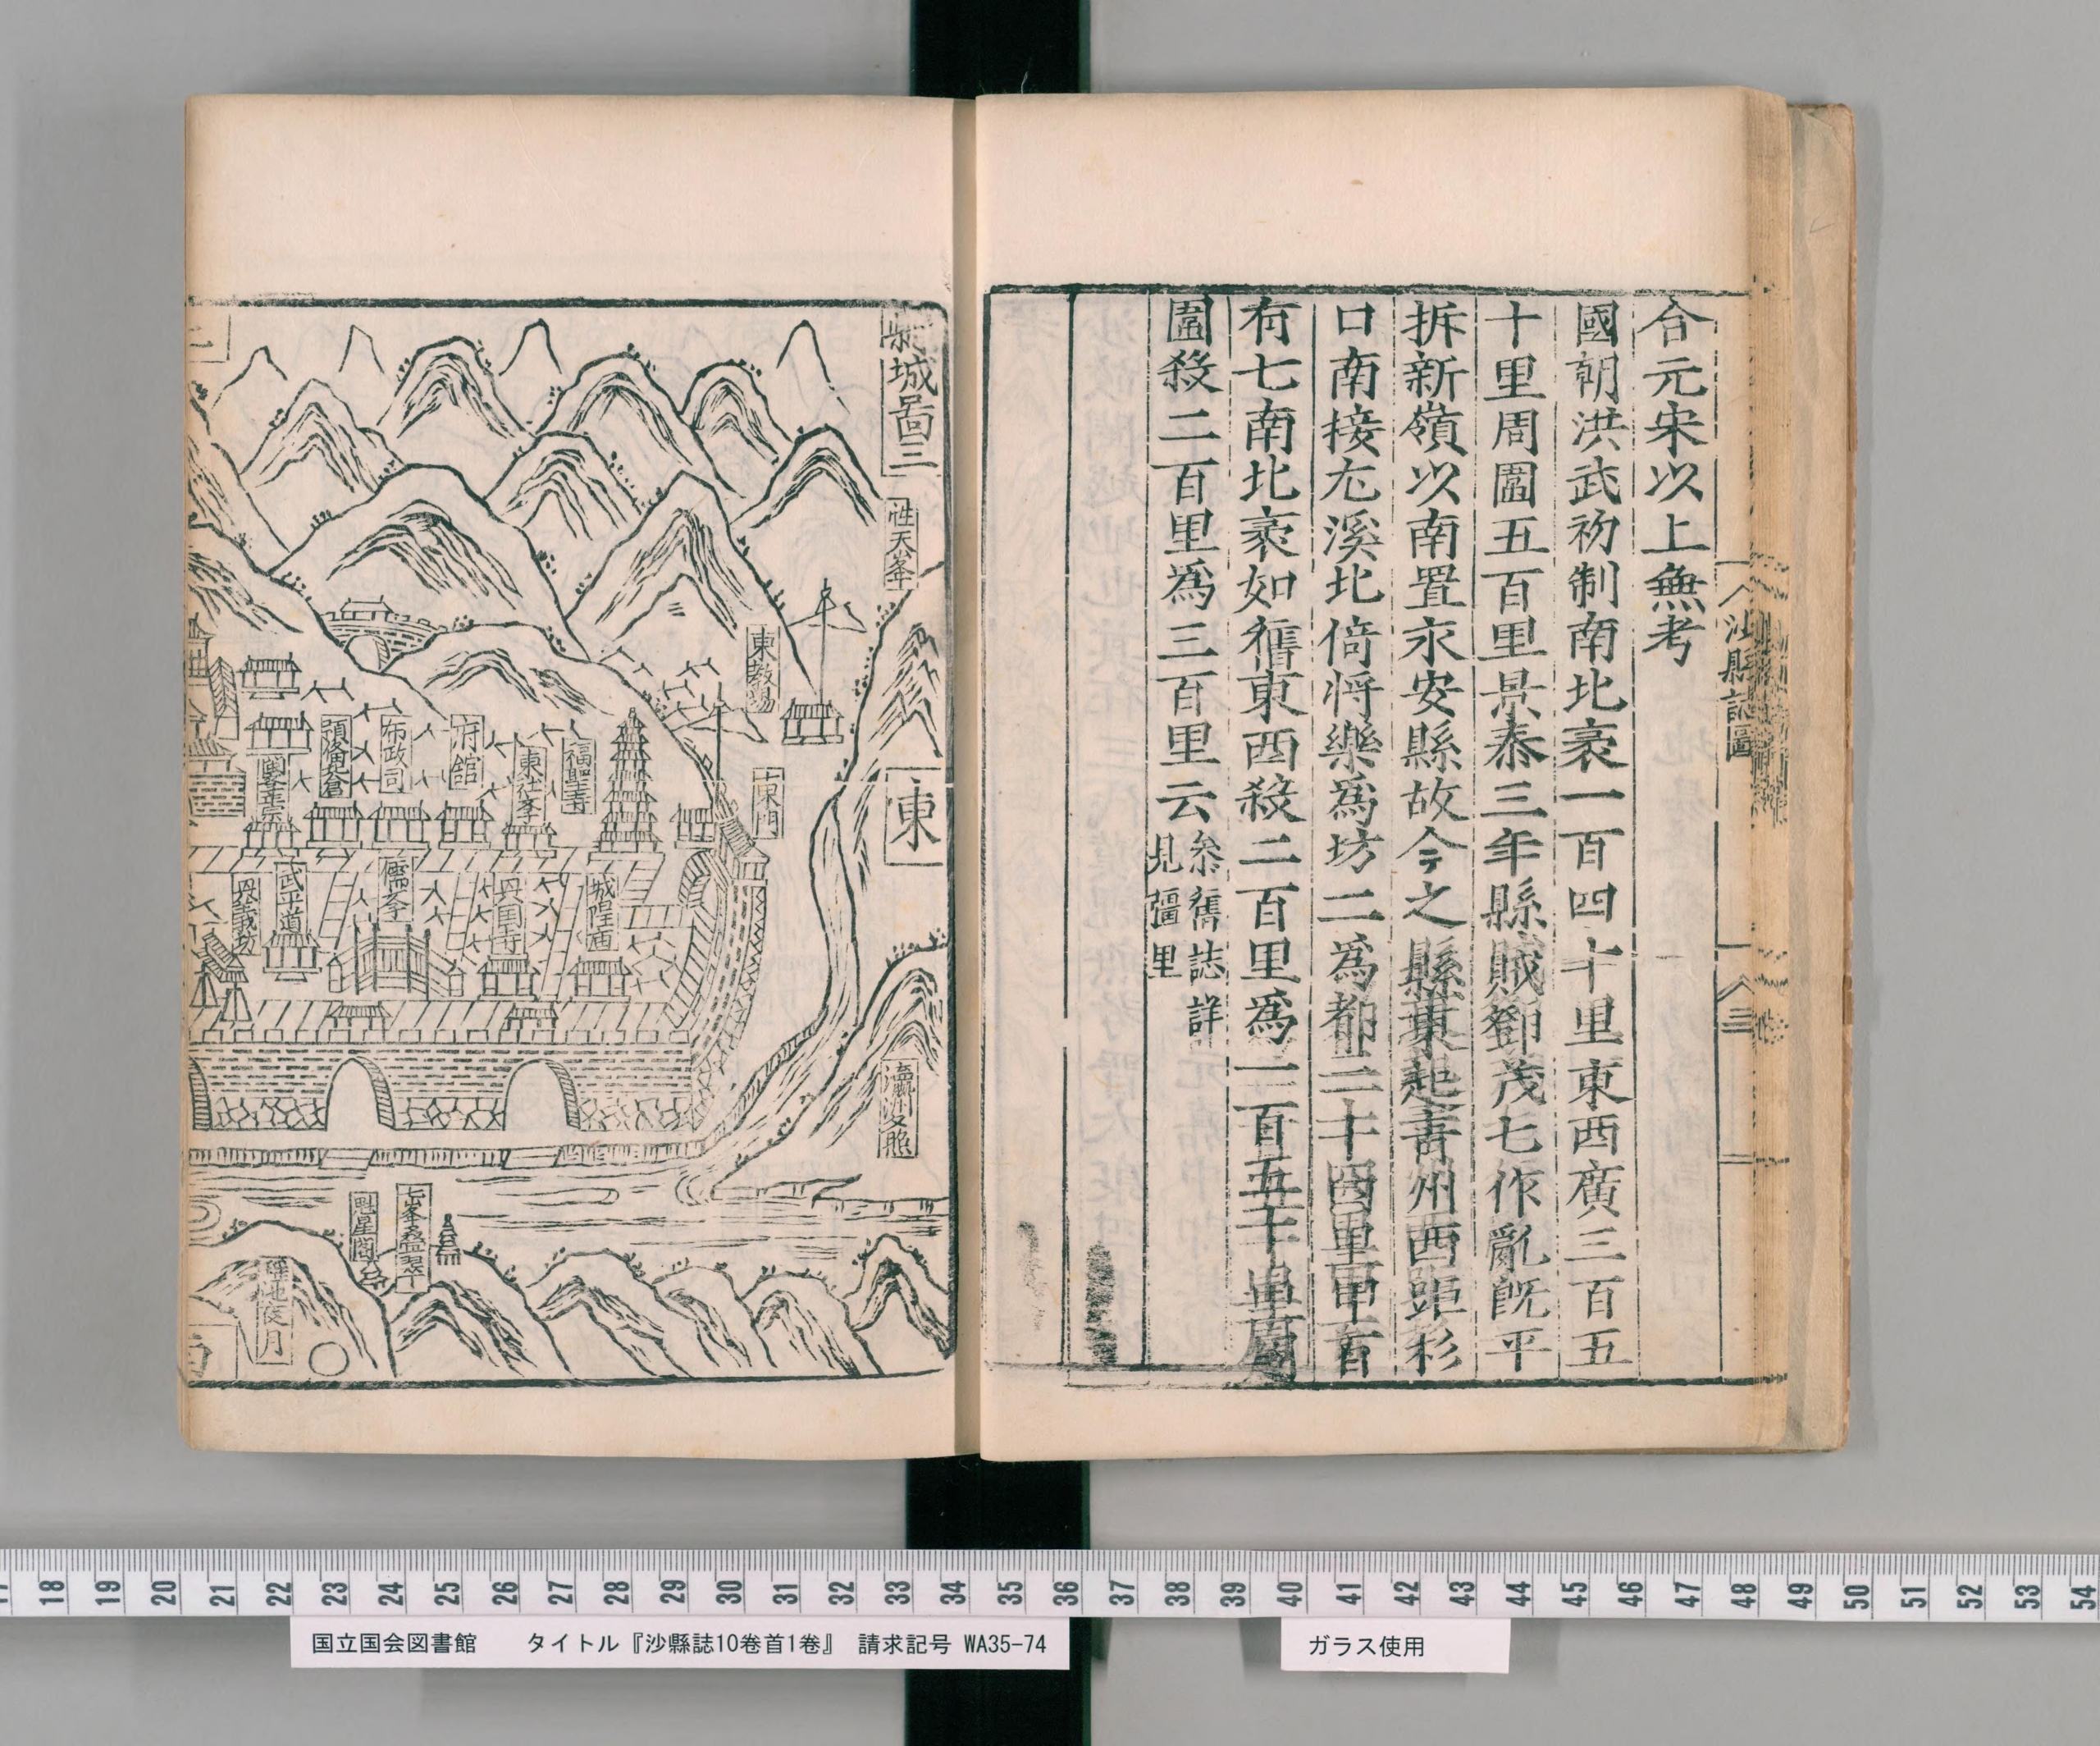 合元宋以上無考
國朝洪武初制南北袤一百四十里東西廣三百五
十里周圍五百里景泰三年縣賊鄧茂七作亂旣平
拆新嶺以南置永安縣故今之縣東起青州西距杉
口南接尤溪北倚將樂爲坊二爲都二十四里甲百
有七南北袤如舊東西殺二百里爲一百五十里周
圍殺二百里爲三百里云
叅舊誌詳
見疆里
沙縣誌圖
三
城啚三
性天峯
東教場
東
東門
福聖寺
東社學
府館
布政司
預備倉
城隍廟
儒學
武平道
魁星閣
七峯疊翠
月
国立国会図書館 タイトル『沙縣誌10巻首1巻』 請求記号 WA35-74
ガラス使用
17 18 19 20 21 22 23 24 25 26 27 28 29 30 31 32 33 34 35 36 37 38 39 40 41 42 43 44 45 46 47 48 49 50 51 52 53 54